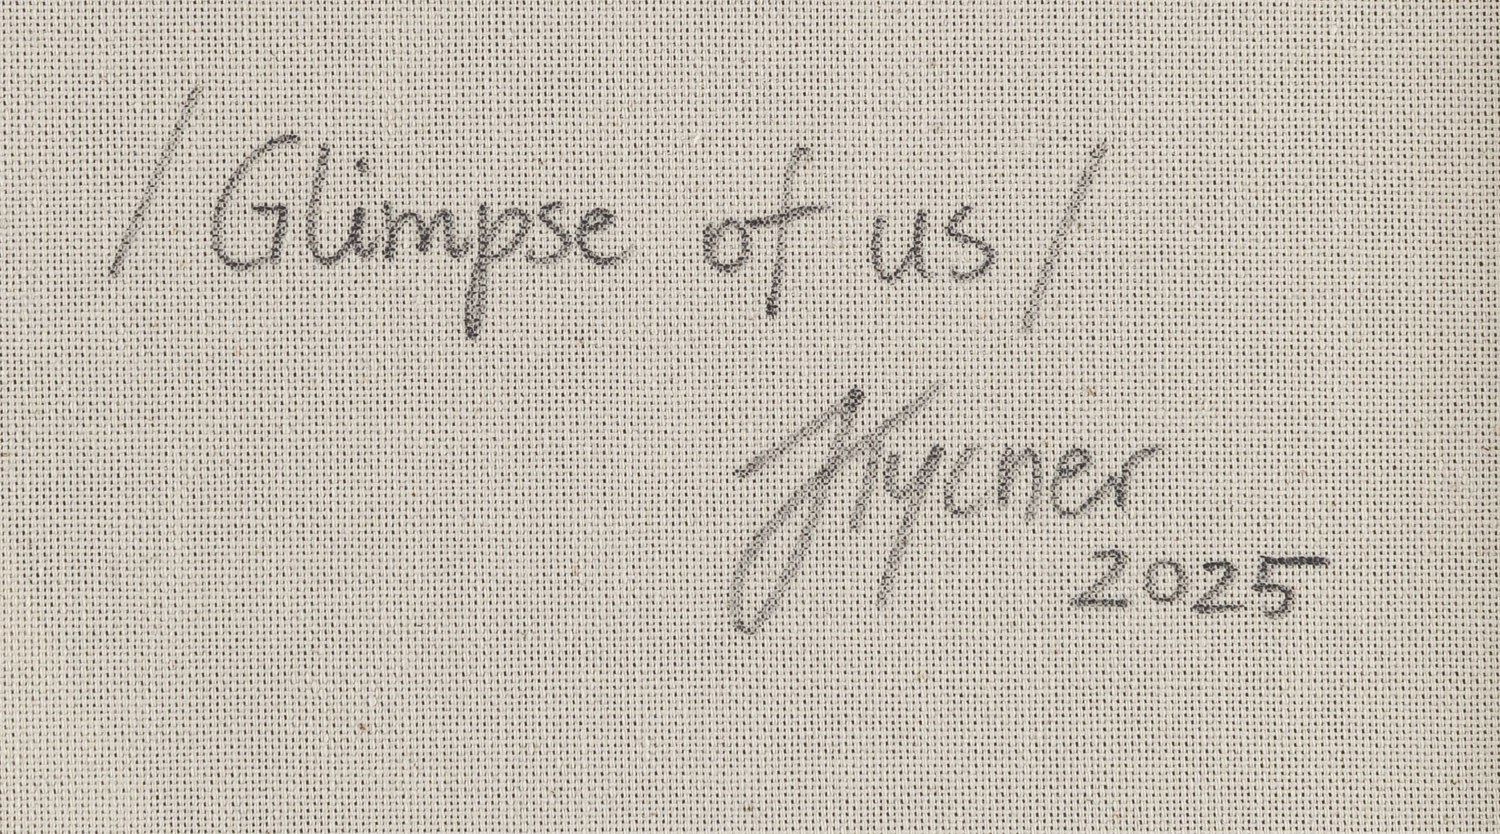 /Glimpse of us/
Hycner
2025